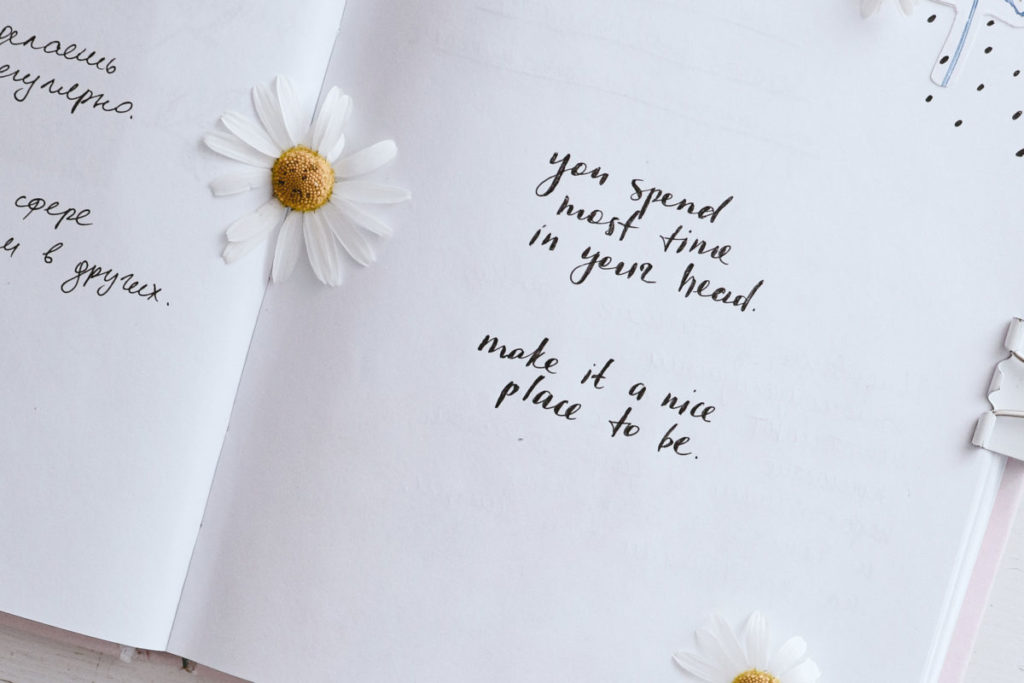 делаешь
регулярно.
сфере
в других.
you spend
most time
in your head.
make it a nice
place to be.